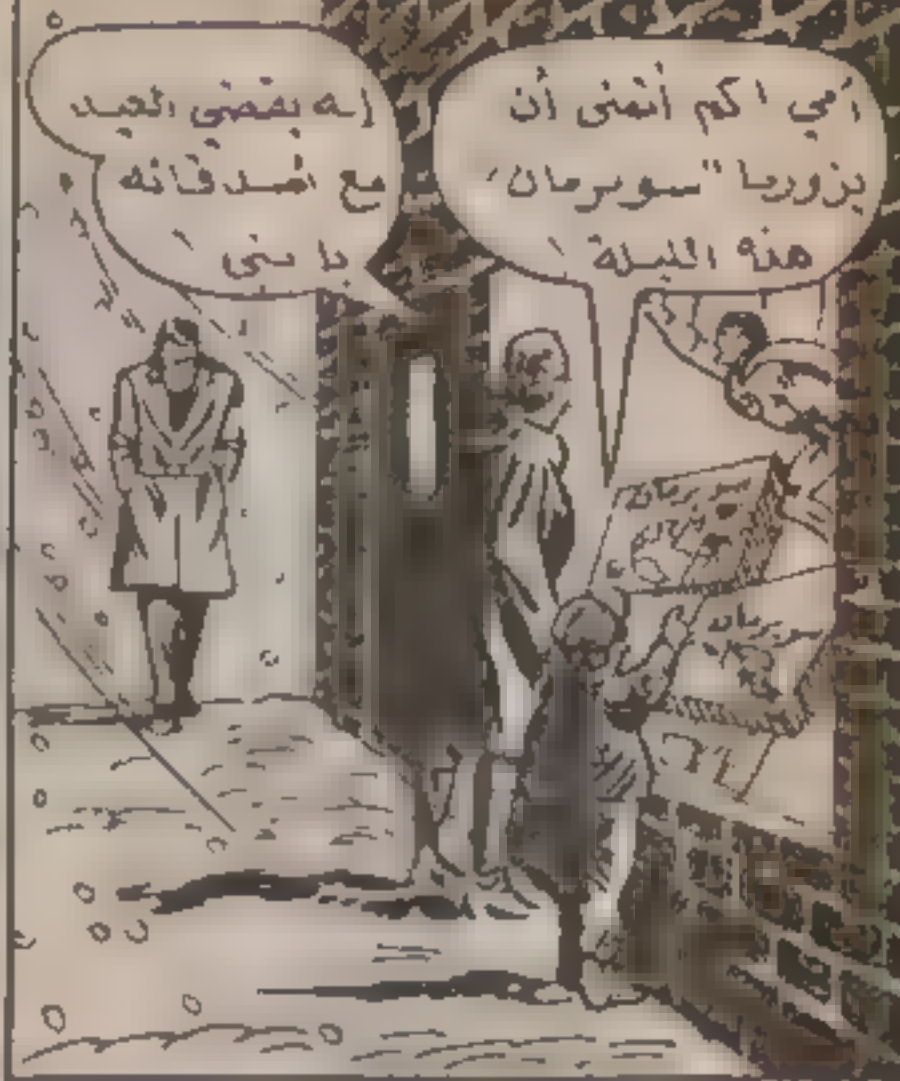 أمي ! كم أتمنى أن
يزورنا "سوبرمان"
هذه الليلة
إنه يقضي العيد
مع أصدقائه
يا بني
سوبرمان
سوبرمان